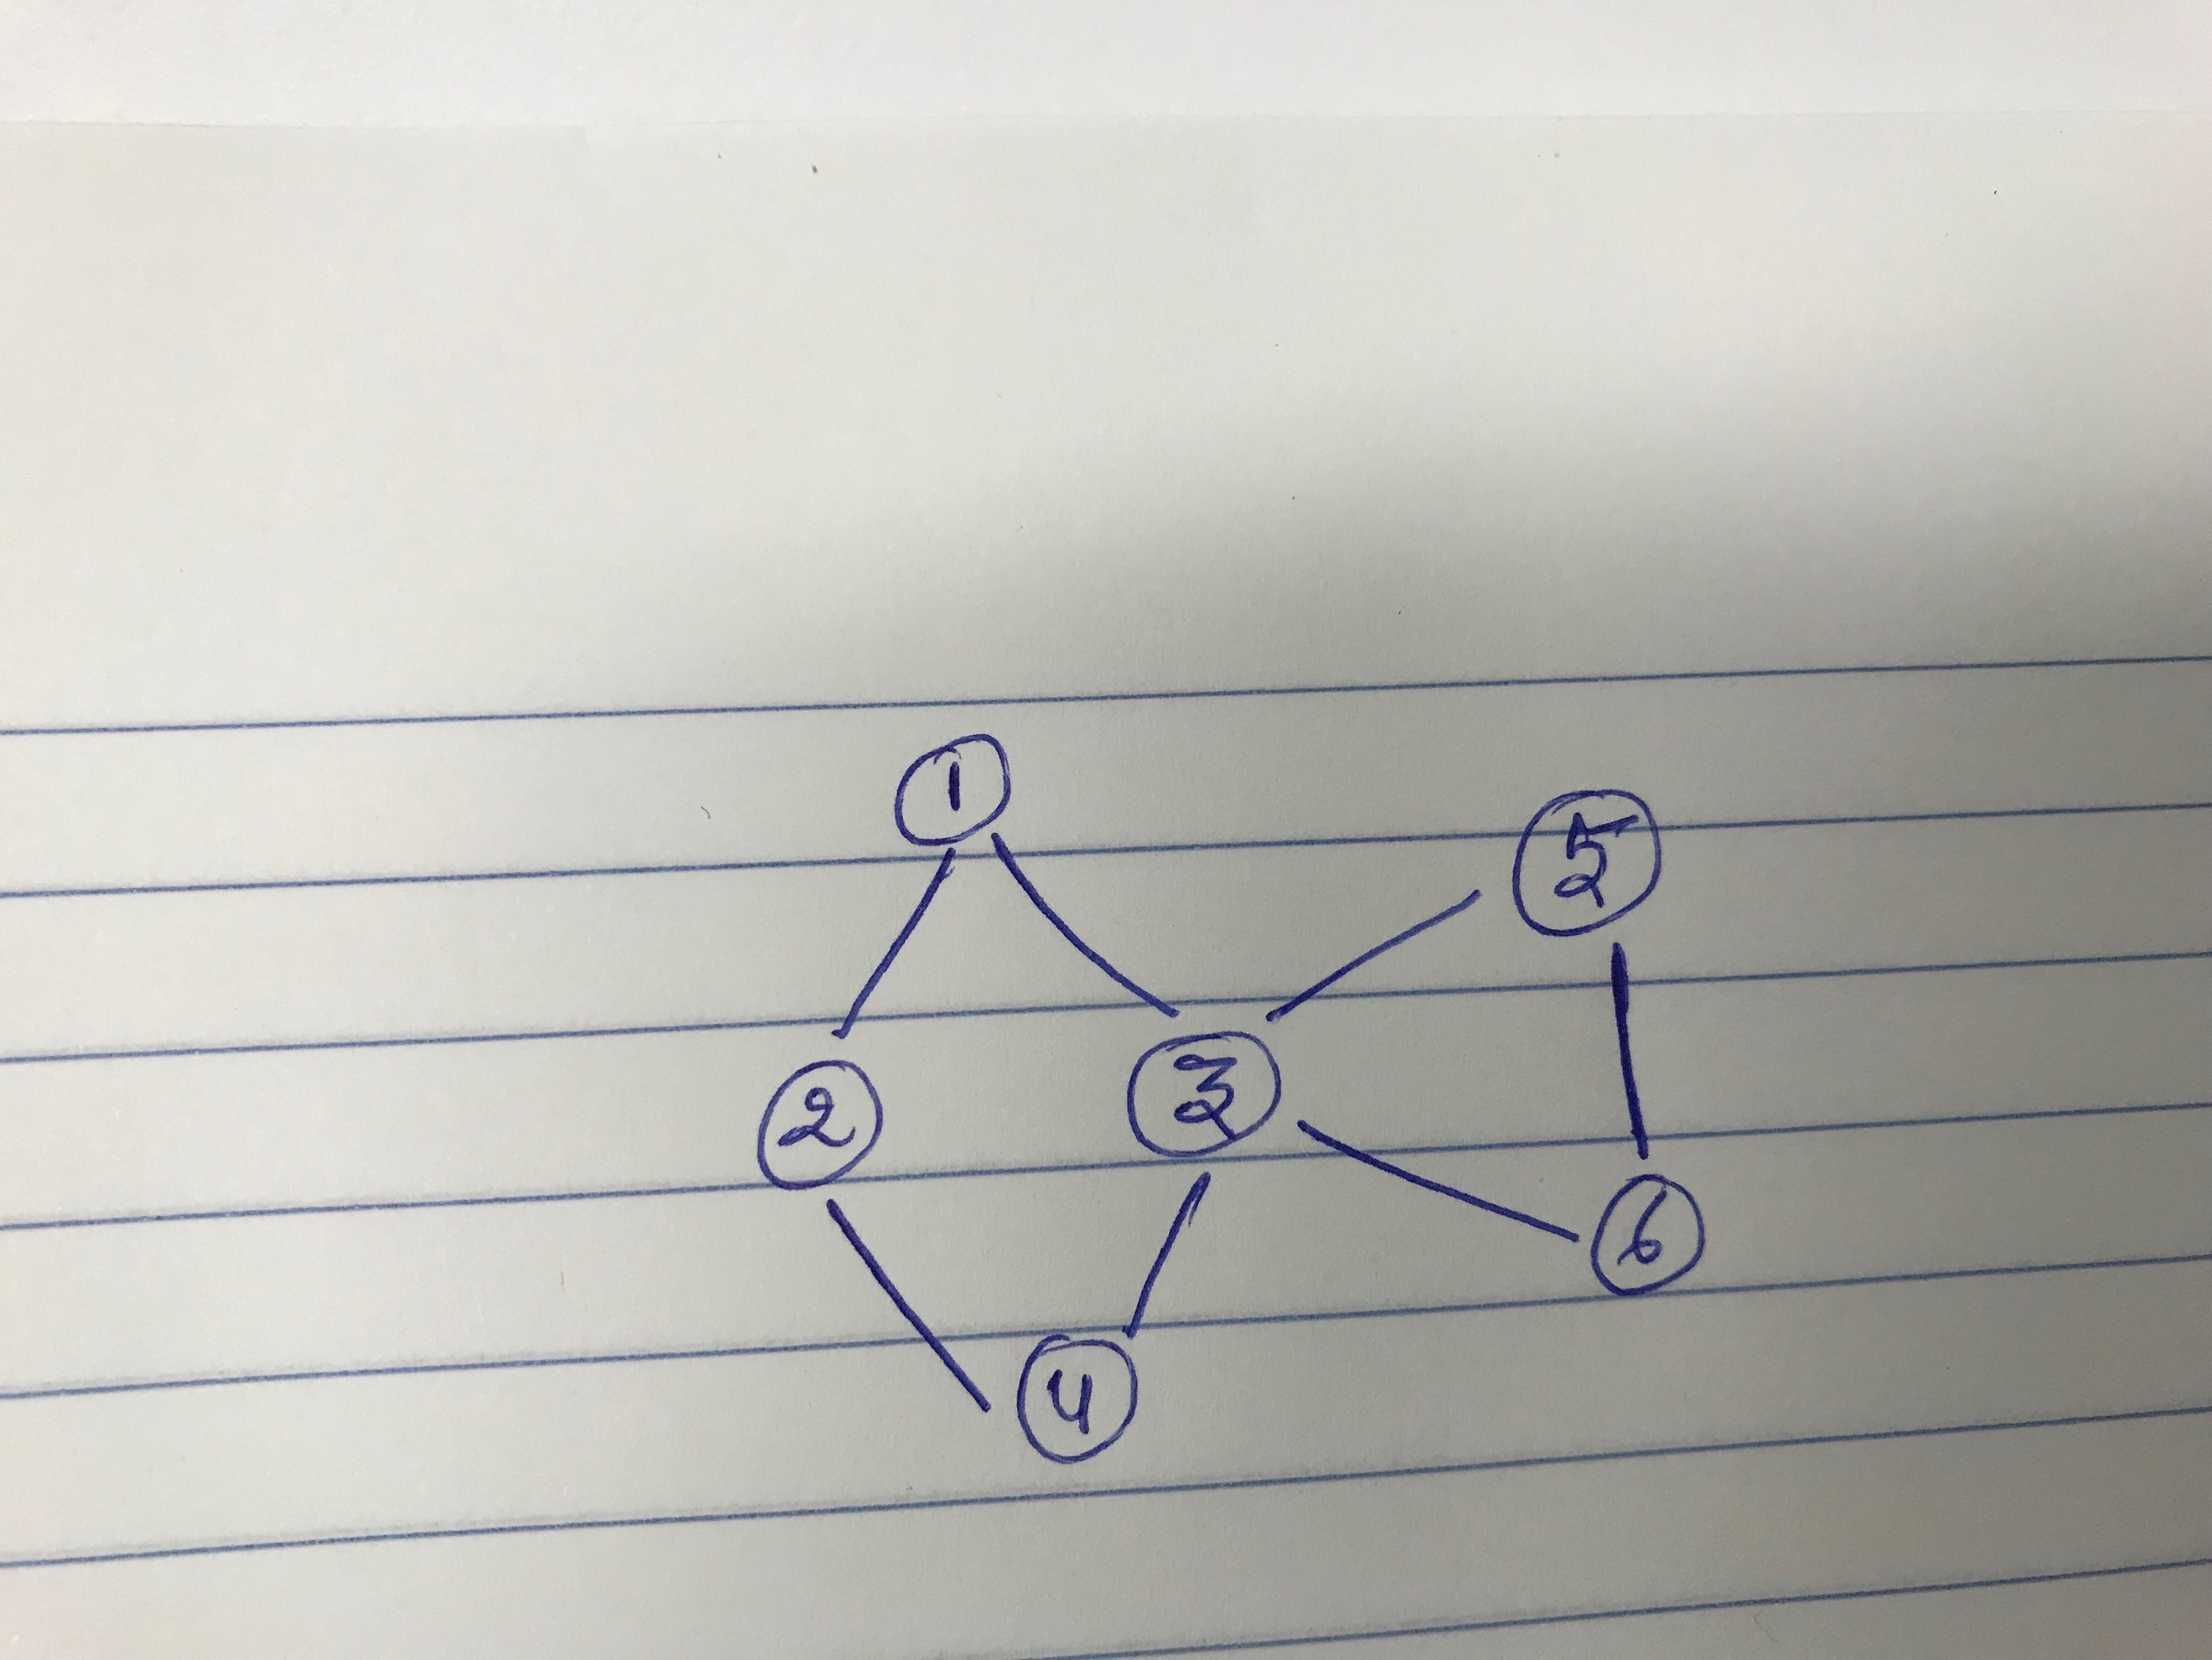 1
5
2
3
6
4